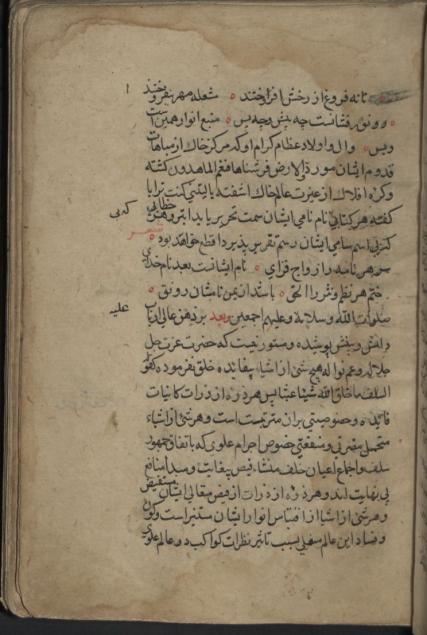 تا نه فروغ از رخش افراختند ه شعله مهر نفروختند
ه دو نور فشانست چه پیش و چه پس ه منبع انوار همین است
و بس ه وال و اولاد عظام کرام او که مرکز خاک از مباهات
قدوم ایشان مورد والارض فرشناها فنعم الماهدون کشته
و کره افلاک از عبرت عالم خاک آشفته یا لیتنی کنت ترابا
کفته هر کتابی نام نامی ایشان سمت تحریر یابد
که بی
کتر بی اسم سامی ایشان رسم تقریر پذیرد قطع خواهد بود ه
شعر
سر هر نامه را رواج فزای ه نام ایشانست بعد نام خدای
ختم هر نظم و نثر را الحق ه باشد از یمن نامشان رونق ه
صلوات الله و سلامه و علیهم اجمعین وبعد بر ذهن عالی
علیه
دانش و بینش پوشیده و مستور نیست که حضرت عزت جل
جلاله و عم نواله هیچ شئ از اشیا بیفائده خلق نفرموده
السلف ما خلق الله شیئا عبثا پس هر ذره از ذرات کاینات
فائده و خصوصیتی بران مترتبست است و هر شئ از اشیاء
متحمل مضرتی و منفعتی خصوص اجرام علوی که باتفاق جمهور
سلف و اجماع اعیان خلف منشاء فیض بیغایت و مبدا منافع
بی نهایت اند و هر ذره از ذرات از فیض ایشان مستفیض
و هر شئ از اشیا از اقتباس انوار ایشان مستنیر است و کون
و فساد این عالم سفلی بسبب تاثیر نظرات کواکب در عالم علوی